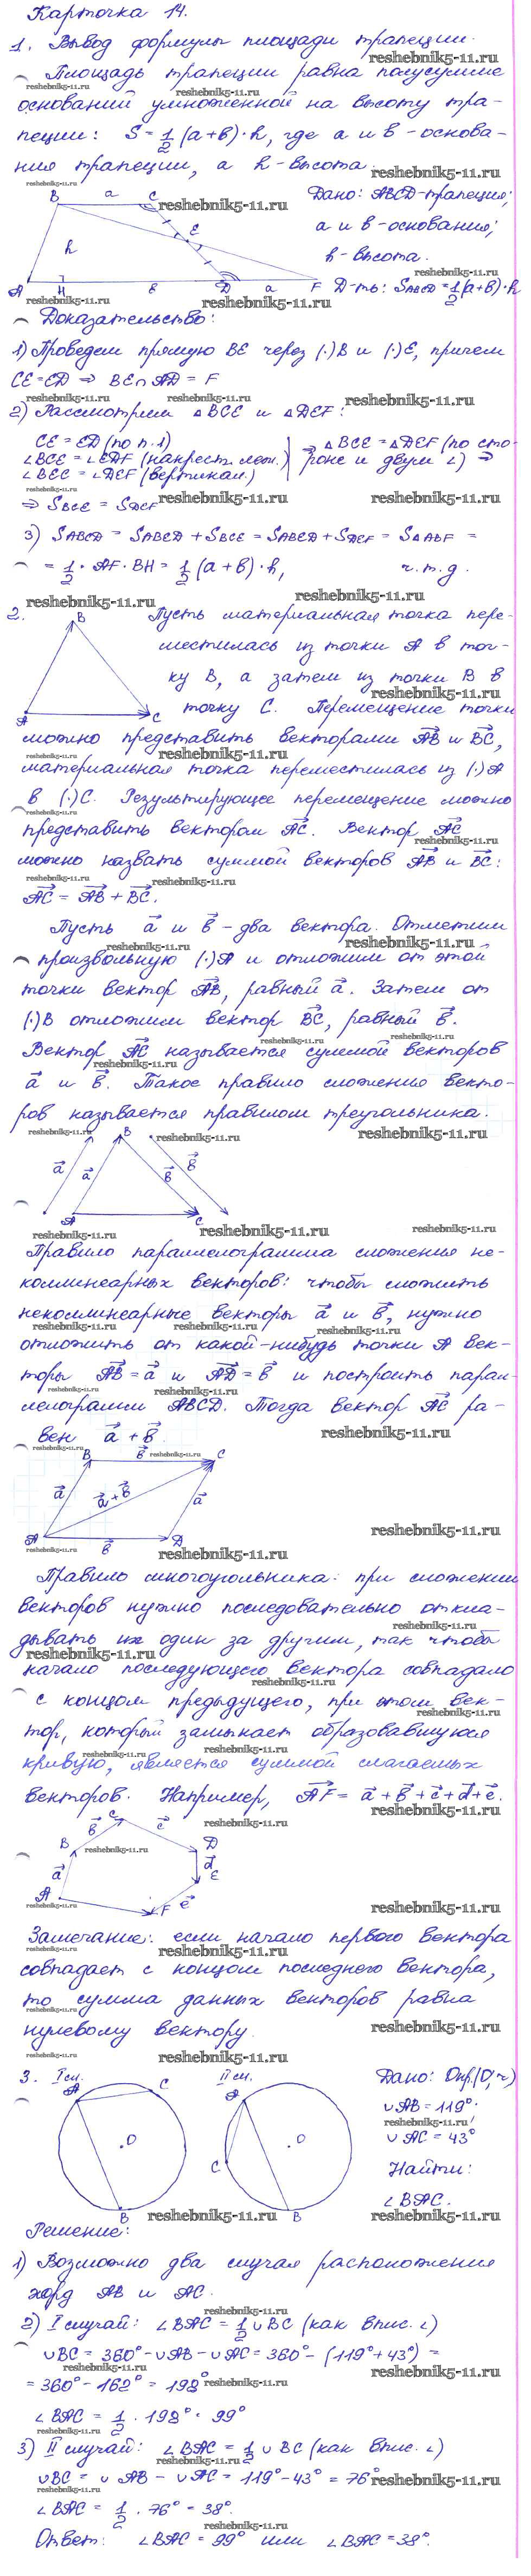 Карточка 14.
1. Вывод формулы площади трапеции.
Площадь трапеции равна полусумме
оснований умноженной на высоту тра-
пеции: S = 1/2 (a+b)·h, где a и b - основа-
ния трапеции, а h - высота.
B a C Дано: ABCD - трапеция;
E a и b - основания;
h h - высота.
A H b D a F Д-ть: S_ABCD = 1/2 (a+b)·h
Доказательство:
1) Проведем прямую BE через (·)B и (·)E, причем
CE = ED ⇒ BE ∩ AD = F
2) Рассмотрим △BCE и △DEF:
CE = ED (по п.1)
∠BCE = ∠EDF (накрест леж.) ⇒ △BCE = △DEF (по сто-
∠BEC = ∠DEF (вертикал.) роне и двум ∠) ⇒
⇒ S_BCE = S_DEF
3) S_ABCD = S_ABED + S_BCE = S_ABED + S_DEF = S_△ABF =
= 1/2 · AF · BH = 1/2 (a+b)·h, ч.т.д.
2. B Пусть материальная точка пере-
местилась из точки A в точ-
ку B, а затем из точки B в
A C точку C. Перемещение точки
можно представить векторами AB и BC,
материальная точка переместилась из (·)A
в (·)C. Результирующее перемещение можно
представить вектором AC. Вектор AC
можно назвать суммой векторов AB и BC:
AC = AB + BC.
Пусть a и b - два вектора. Отметим
произвольную (·)A и отложим от этой
точки вектор AB, равный a. Затем от
(·)B отложим вектор BC, равный b.
Вектор AC называется суммой векторов
a и b. Такое правило сложения векто-
ров называется правилом треугольника.
B
a a b b
A C
Правило параллелограмма сложения не-
коллинеарных векторов: чтобы сложить
неколлинеарные векторы a и b, нужно
отложить от какой-нибудь точки A век-
торы AB = a и AD = b и построить парал-
лелограмм ABCD. Тогда вектор AC ра-
вен a + b.
B b C
a a+b a
A b D
Правило многоугольника: при сложении
векторов нужно последовательно откла-
дывать их один за другим, так чтобы
начало последующего вектора совпадало
с концом предыдущего, при этом век-
тор, который замыкает образовавшуюся
кривую, является суммой слагаемых
векторов. Например, AF = a + b + c + d + e.
C
b c
B D
a d
A E
F e
Замечание: если начало первого вектора
совпадает с концом последнего вектора,
то сумма данных векторов равна
нулевому вектору.
3. I сл. II сл. Дано: Окр.(O, r)
A C A ∪AB = 119°
O O ∪AC = 43°
C Найти:
B B ∠BAC.
Решение:
1) Возможно два случая расположения
хорд AB и AC.
2) I случай: ∠BAC = 1/2 ∪BC (как впис. ∠)
∪BC = 360° - ∪AB - ∪AC = 360° - (119° + 43°) =
= 360° - 162° = 198°
∠BAC = 1/2 · 198° = 99°
3) II случай: ∠BAC = 1/2 ∪BC (как впис. ∠)
∪BC = ∪AB - ∪AC = 119° - 43° = 76°
∠BAC = 1/2 · 76° = 38°.
Ответ: ∠BAC = 99° или ∠BAC = 38°.
reshebnik5-11.ru